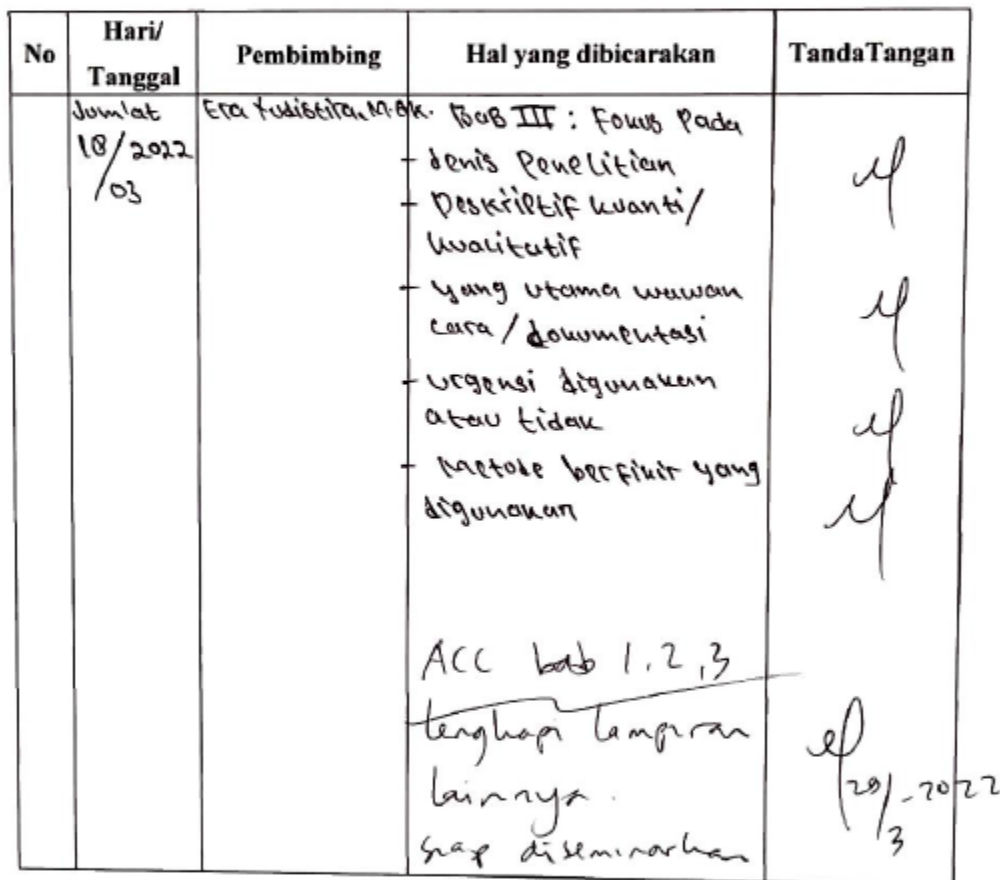 No Hari/ Tanggal Pembimbing Hal yang dibicarakan TandaTangan
Jum'at Era Yudistira, M.Ak. BAB III : Fokus Pada
18/03/2022
- Jenis Penelitian
- Deskriptif kuanti/
kualitatif
- yang utama wawan
cara / dokumentasi
- urgensi digunakan
atau tidak
- Metode berfikir yang
digunakan
ACC bab 1.2,3
lengkapi lampiran
lainnya.
siap diseminarkan
/3 -2022